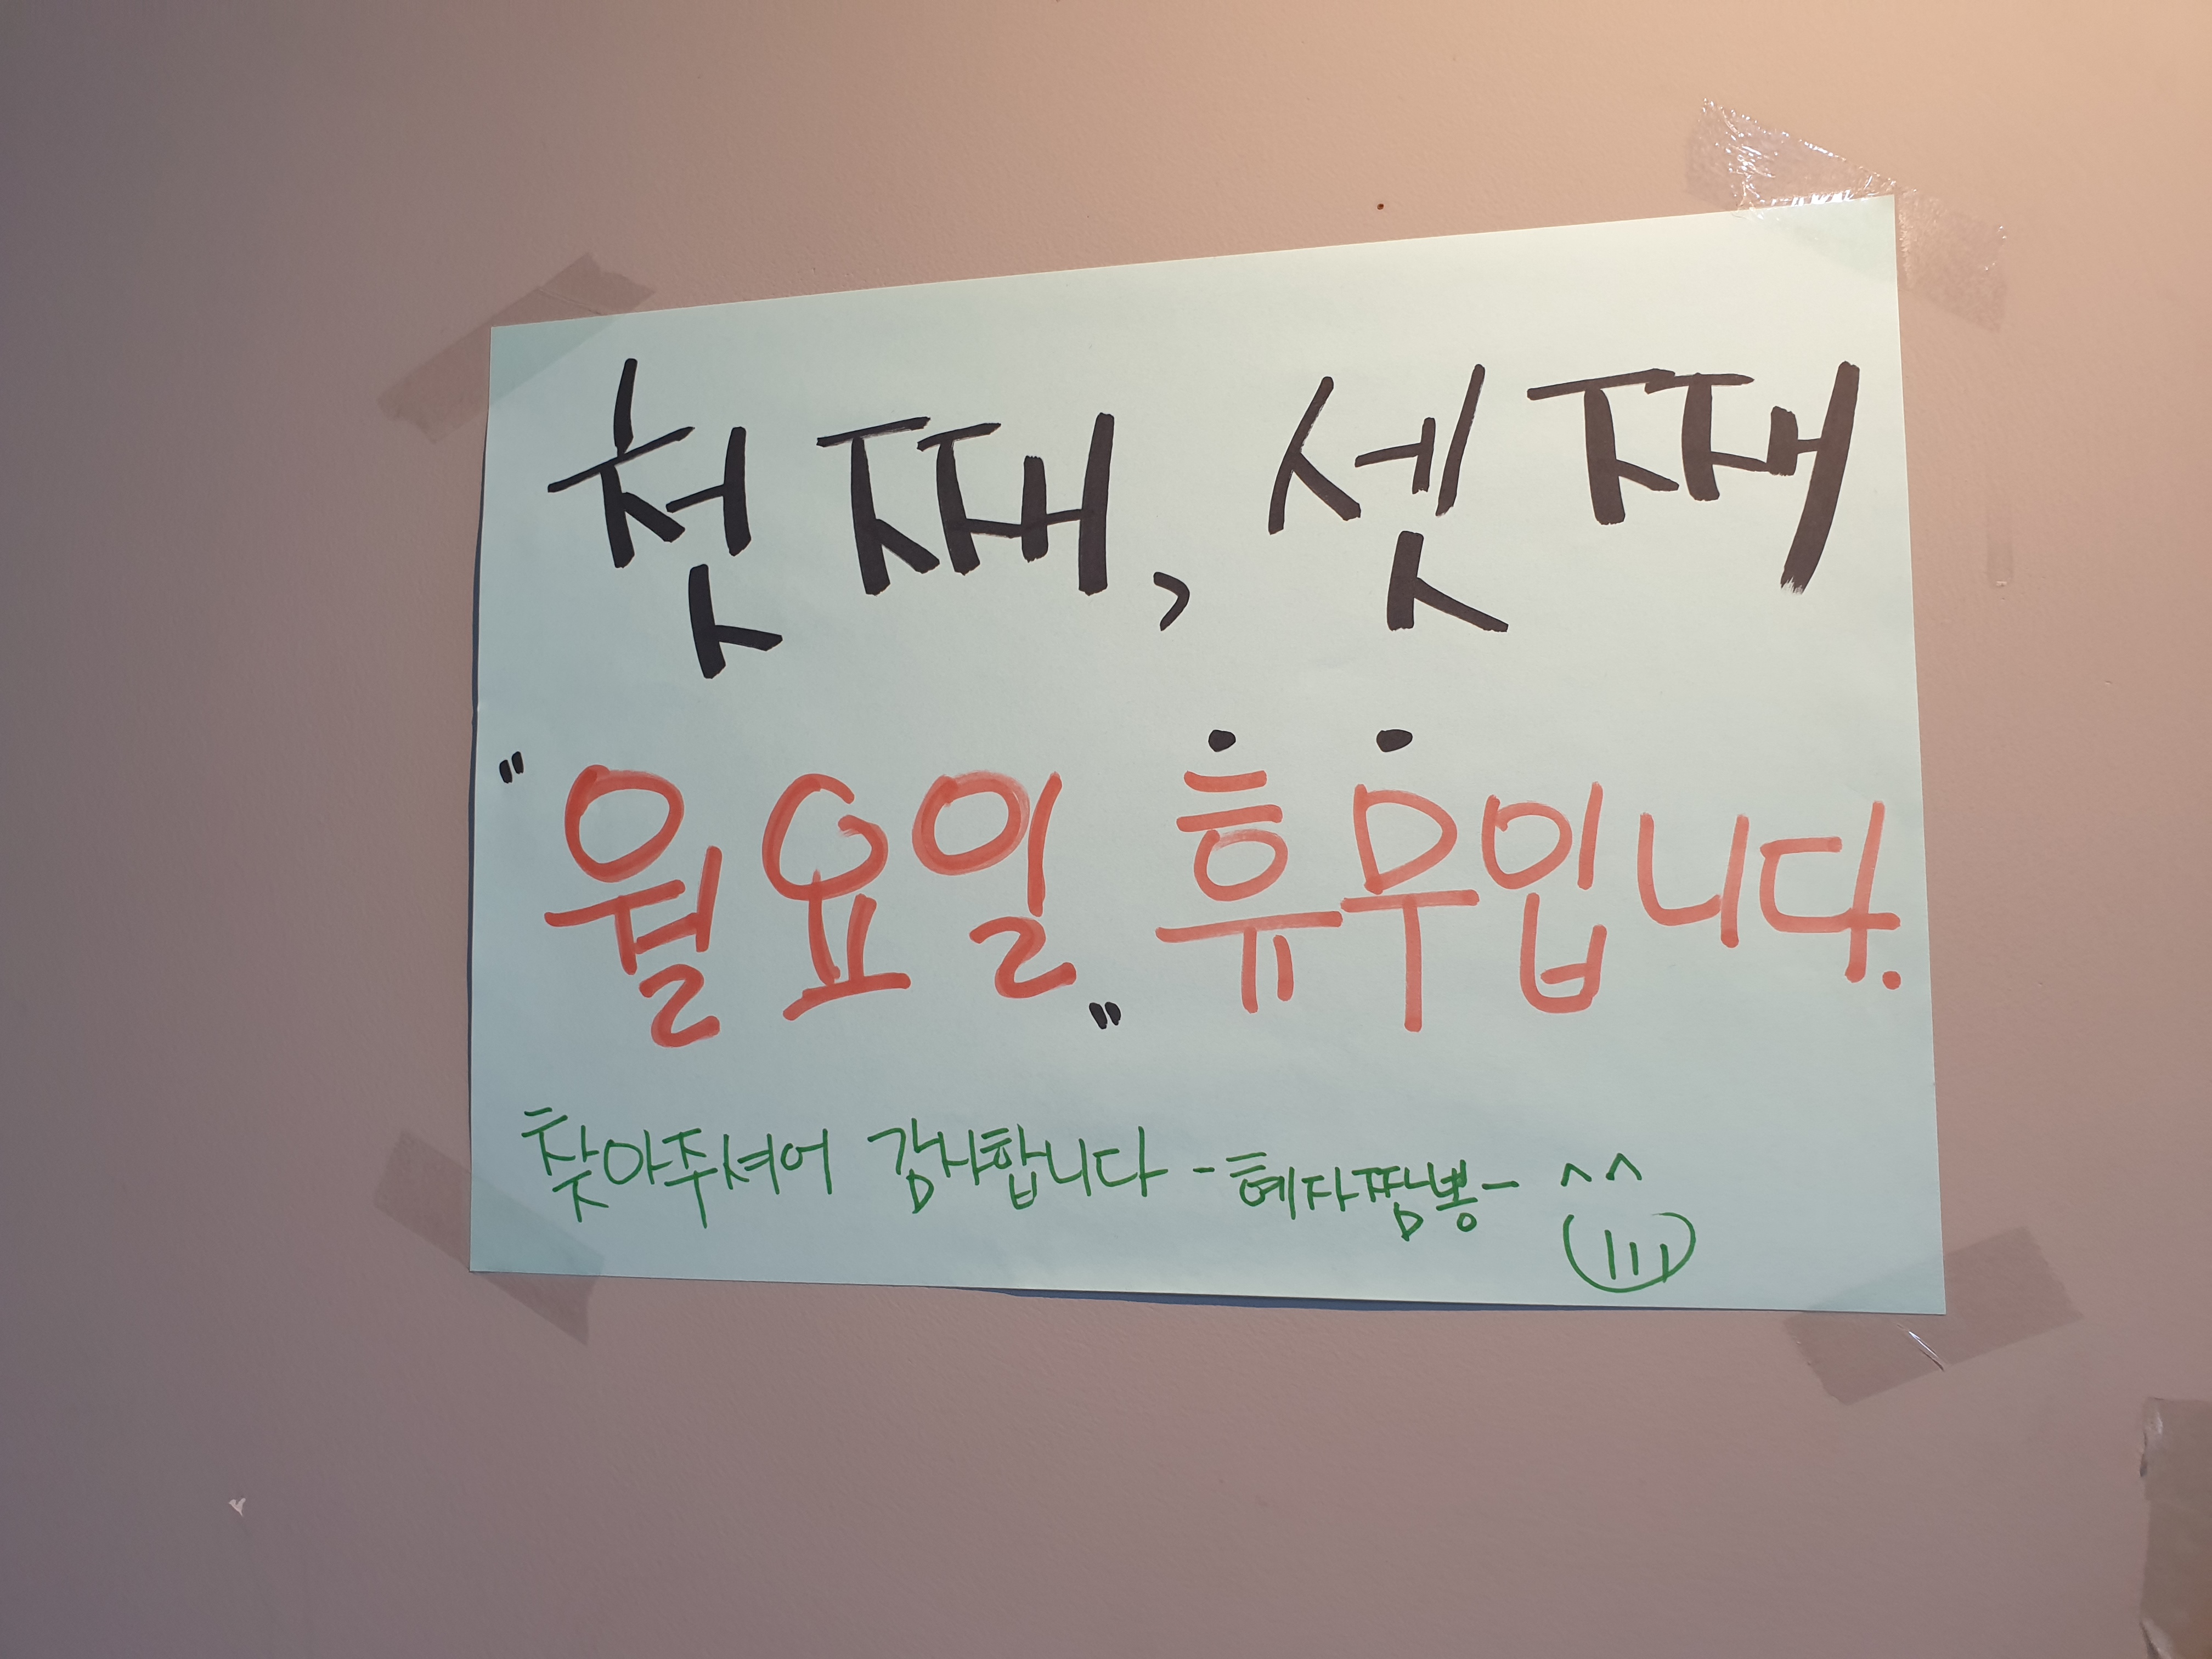 첫째, 셋째
"월요일" 휴무입니다.
찾아주셔어 감사합니다 -혜자짬뽕- ^^